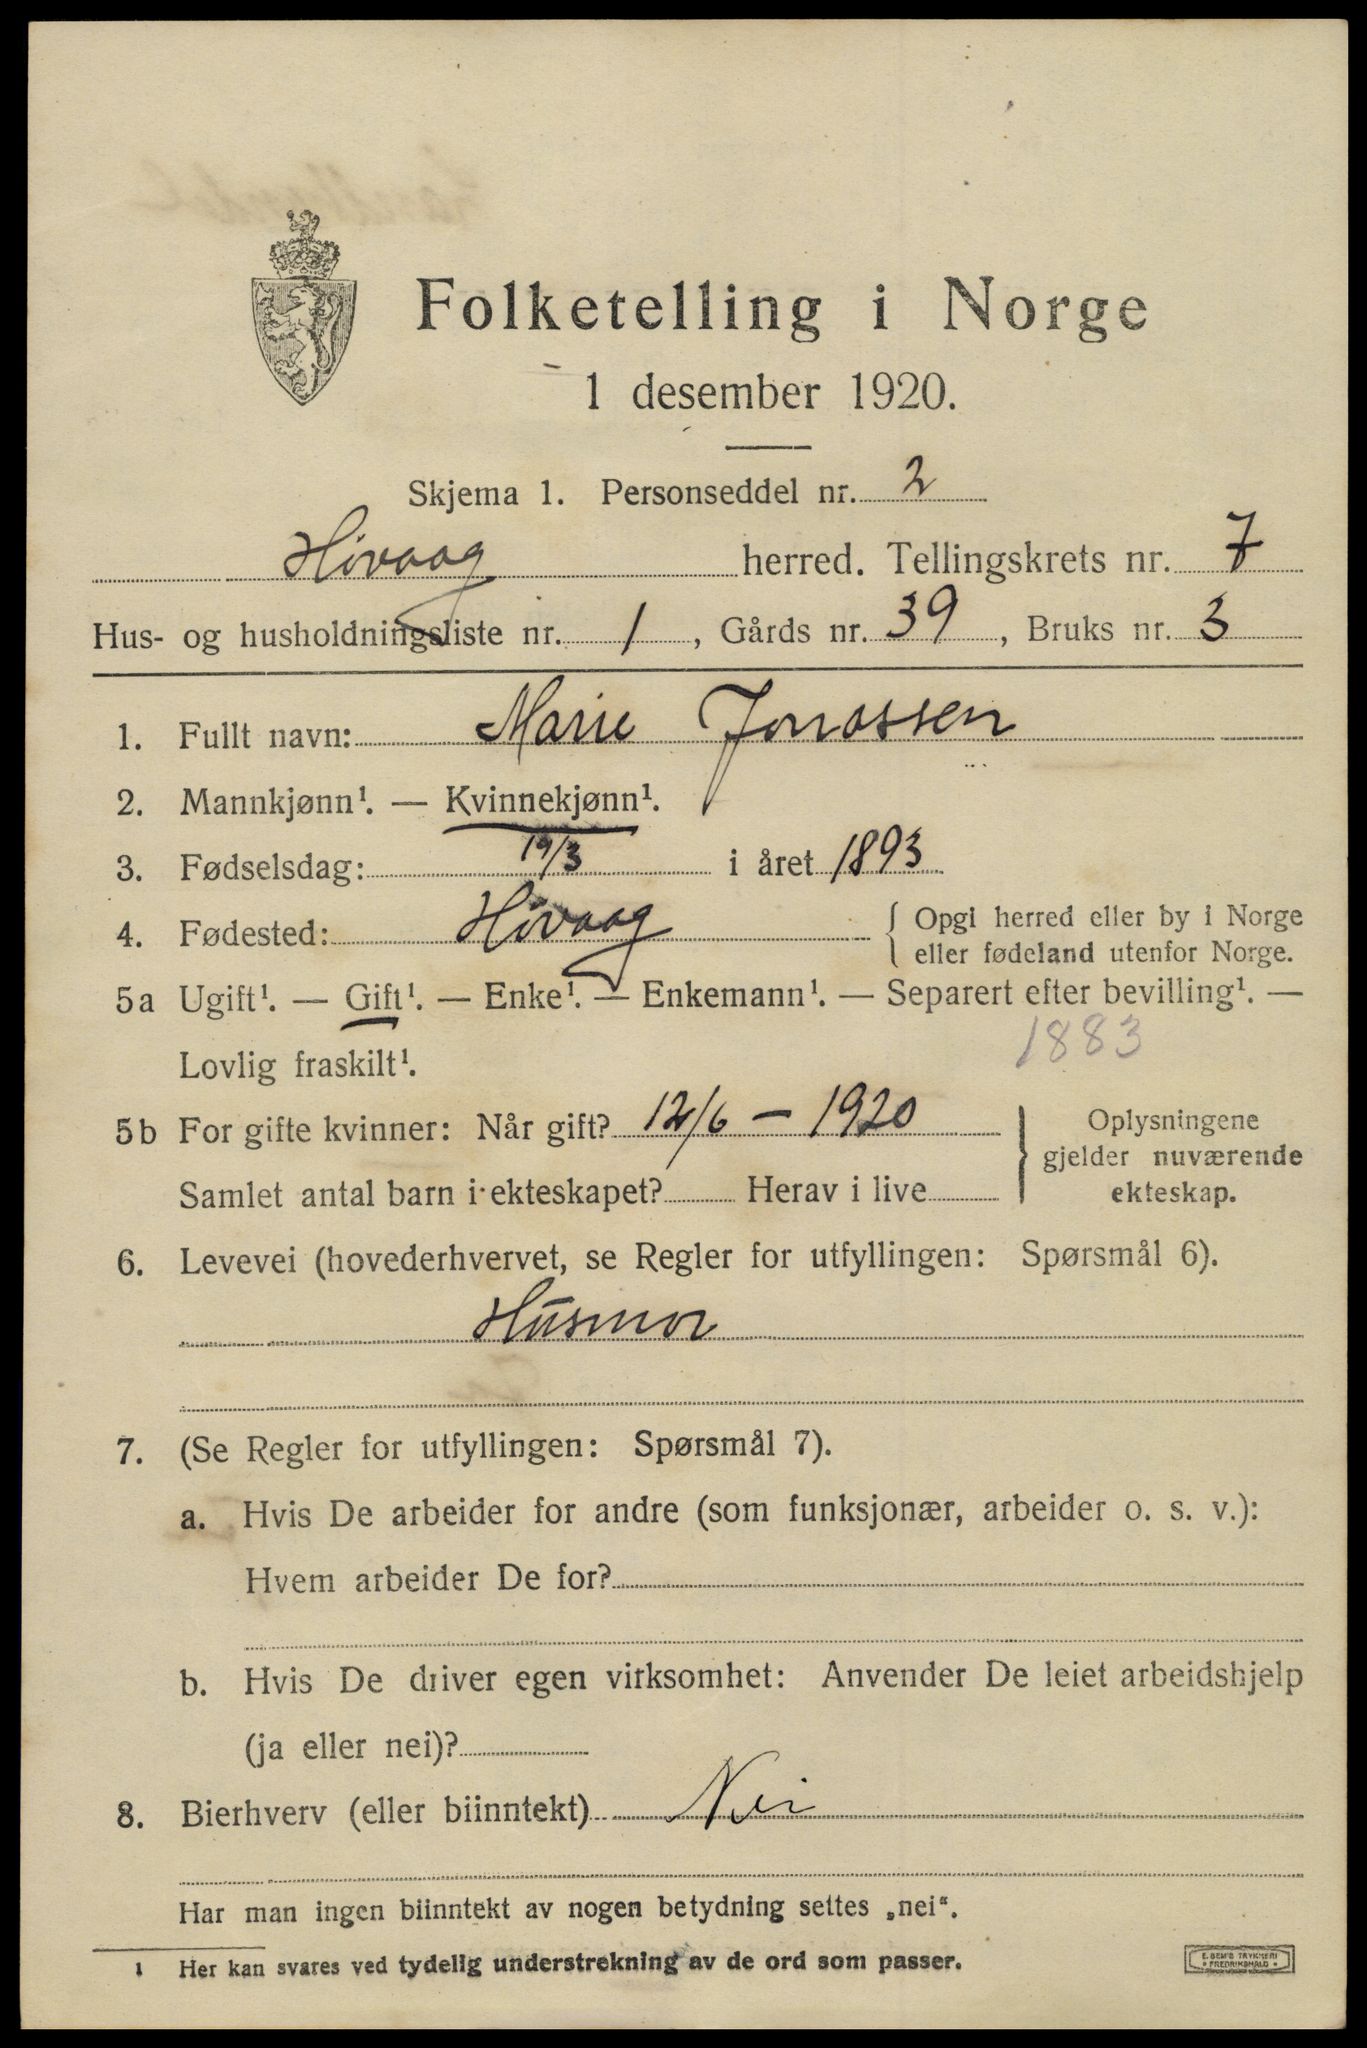 Folketelling i Norge
1 desember 1920.
Skjema 1. Personseddel nr. 2
Høvaag herred. Tellingskrets nr. 7
Hus- og husholdningsliste nr. 1, Gårds nr. 39, Bruks nr. 3
1. Fullt navn: Marie Jonassen
2. Mannkjønn¹. — Kvinnekjønn¹.
3. Fødselsdag: 19/3 i året 1893
4. Fødested: Høvaag { Opgi herred eller by i Norge
eller fødeland utenfor Norge.
5a Ugift¹. — Gift¹. — Enke¹. — Enkemann¹. — Separert efter bevilling¹. —
Lovlig fraskilt¹. 1883
5b For gifte kvinner: Når gift? 12/6 — 1920
Samlet antal barn i ekteskapet? Herav i live
} Oplysningene
gjelder nuværende
ekteskap.
6. Levevei (hovederhvervet, se Regler for utfyllingen: Spørsmål 6).
Husmor
7. (Se Regler for utfyllingen: Spørsmål 7).
a. Hvis De arbeider for andre (som funksjonær, arbeider o. s. v.):
Hvem arbeider De for?
b. Hvis De driver egen virksomhet: Anvender De leiet arbeidshjelp
(ja eller nei)?
8. Bierhverv (eller biinntekt) Nei
Har man ingen biinntekt av nogen betydning settes „nei“.
1 Her kan svares ved tydelig understrekning av de ord som passer.
E. SEM'S TRYKKERI
• FREDRIKSHALD •